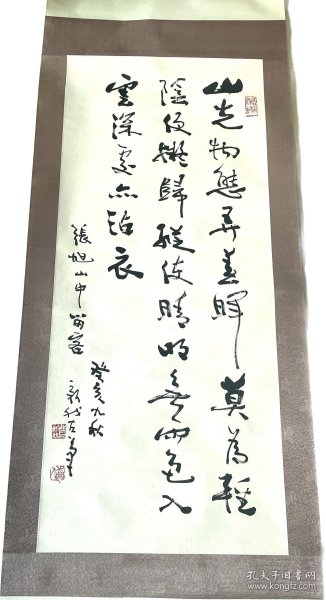 山光物態弄春暉莫為輕
陰便擬歸縱使晴明無雨色入
雲深處亦沾衣
張旭山中留客
癸亥九秋
孔夫子旧书网
www.kongfz.com